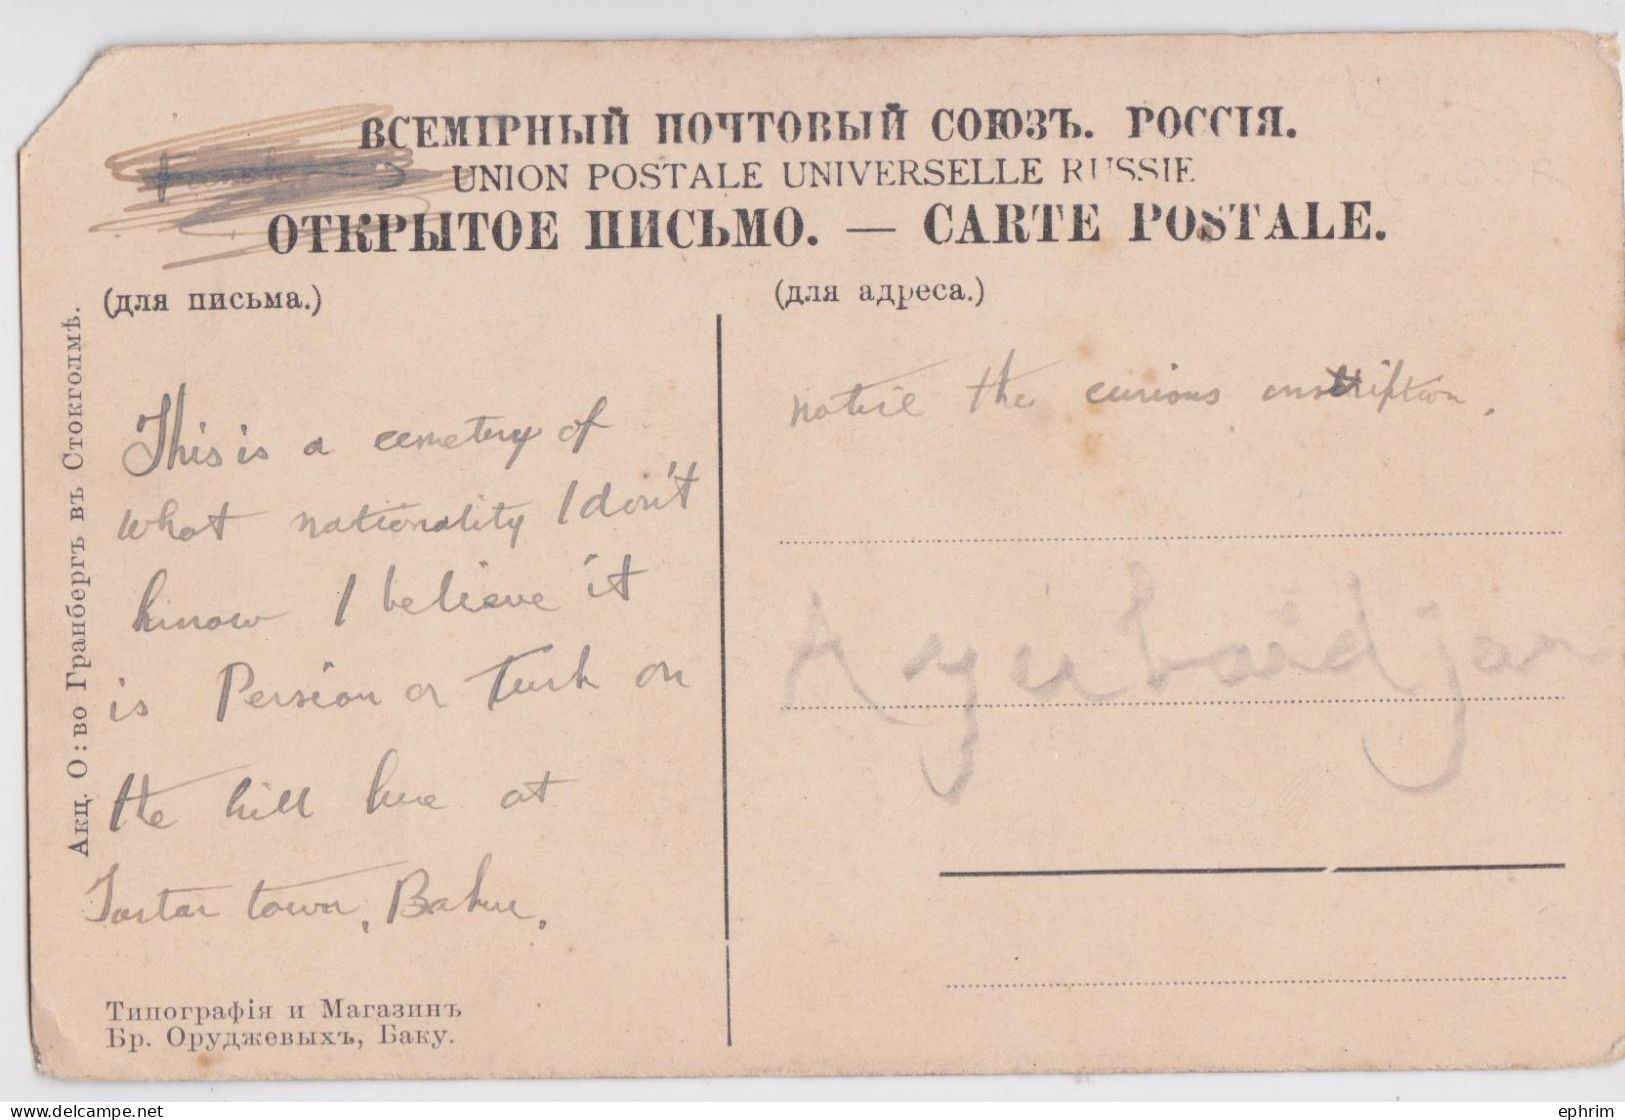 ВСЕМІРНЫЙ ПОЧТОВЫЙ СОЮЗЪ. РОССІЯ.
UNION POSTALE UNIVERSELLE RUSSIE
ОТКРЫТОЕ ПИСЬМО. — CARTE POSTALE.
(для письма.)
(для адреса.)
Акц. О:во Гранбергъ въ Стокгольмѣ.
This is a cemetery of
what nationality I don't
know I believe it
is Persian or Turk on
the hill here at
Tartar town, Baku.
notice the curious inscription.
Azerbaidjan
Типографія и Магазинъ
Бр. Оруджевыхъ, Баку.
ephrim